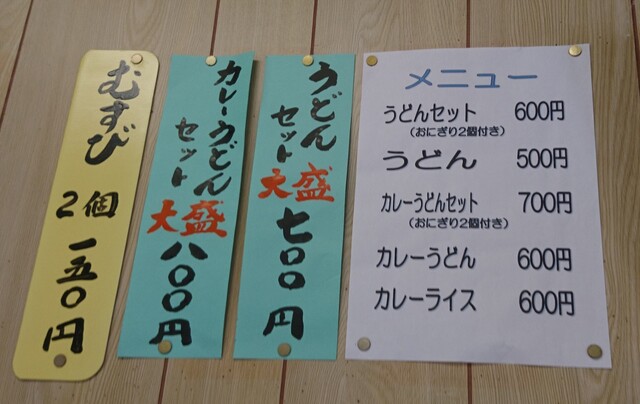 むすび
2個
一五〇円
カレーうどん
セット
大盛
八〇〇円
うどん
セット
大盛
七〇〇円
メニュー
うどんセット 600円
(おにぎり2個付き)
うどん 500円
カレーうどんセット 700円
(おにぎり2個付き)
カレーうどん 600円
カレーライス 600円